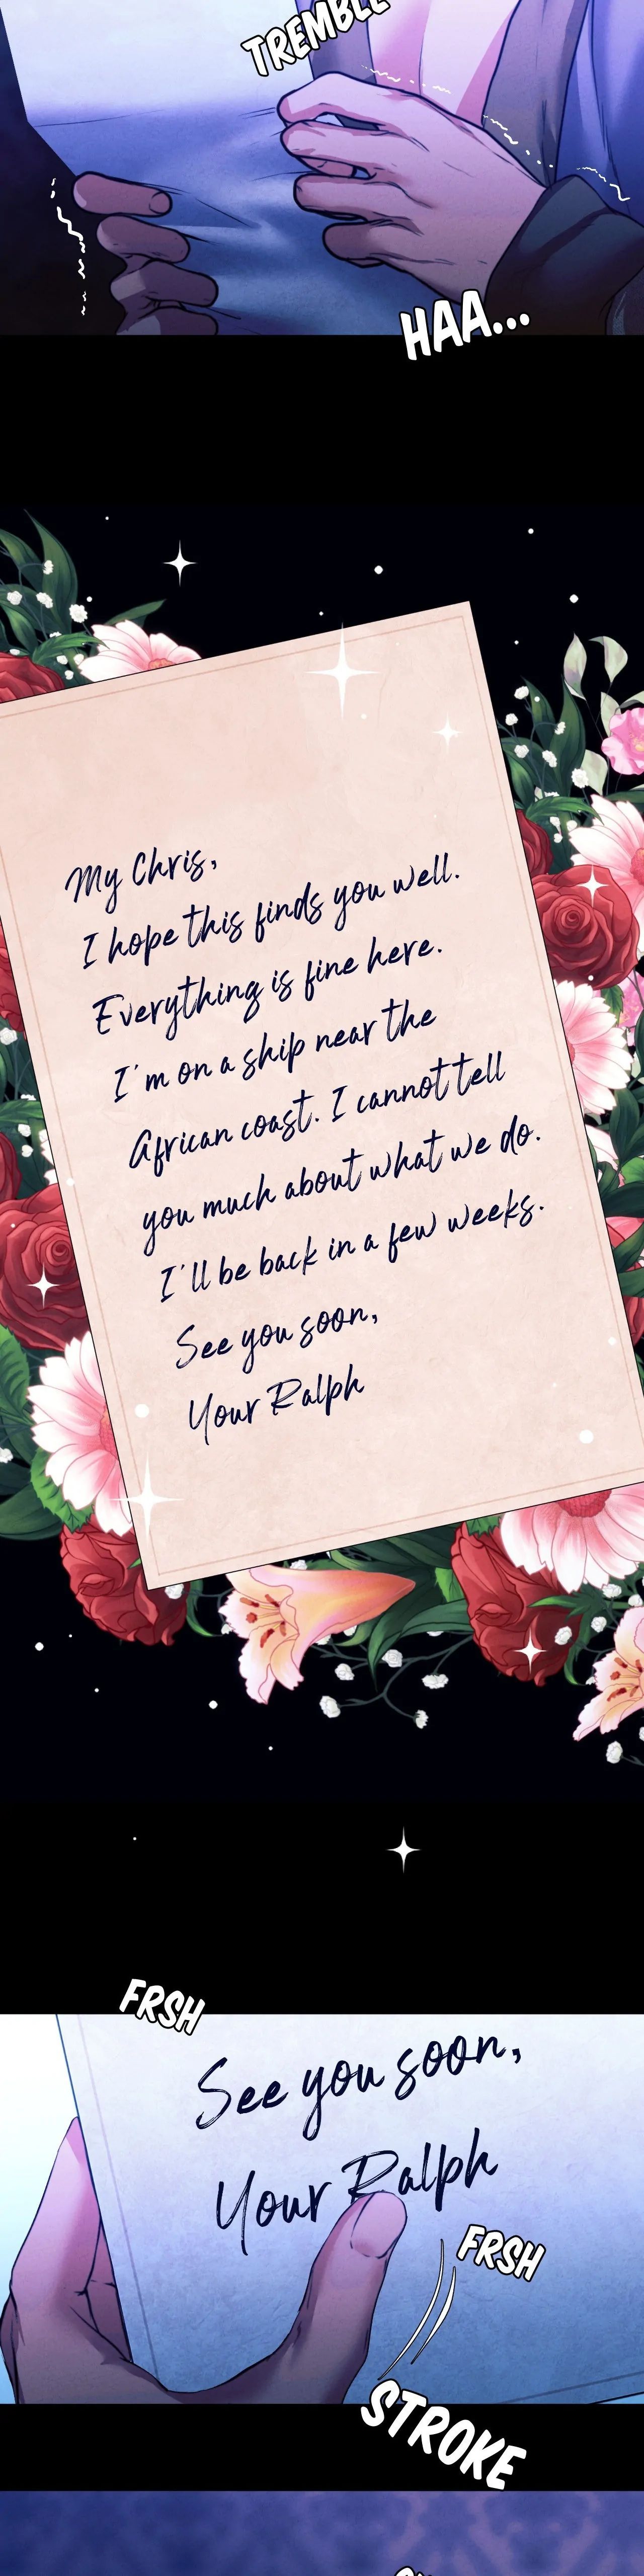 TREMBLE
HAA...
My Chris,
I hope this finds you well.
Everything is fine here.
I'm on a ship near the
African coast. I cannot tell
you much about what we do.
I'll be back in a few weeks.
See you soon,
Your Ralph
FRSH
See you soon,
Your Ralph
FRSH
STROKE